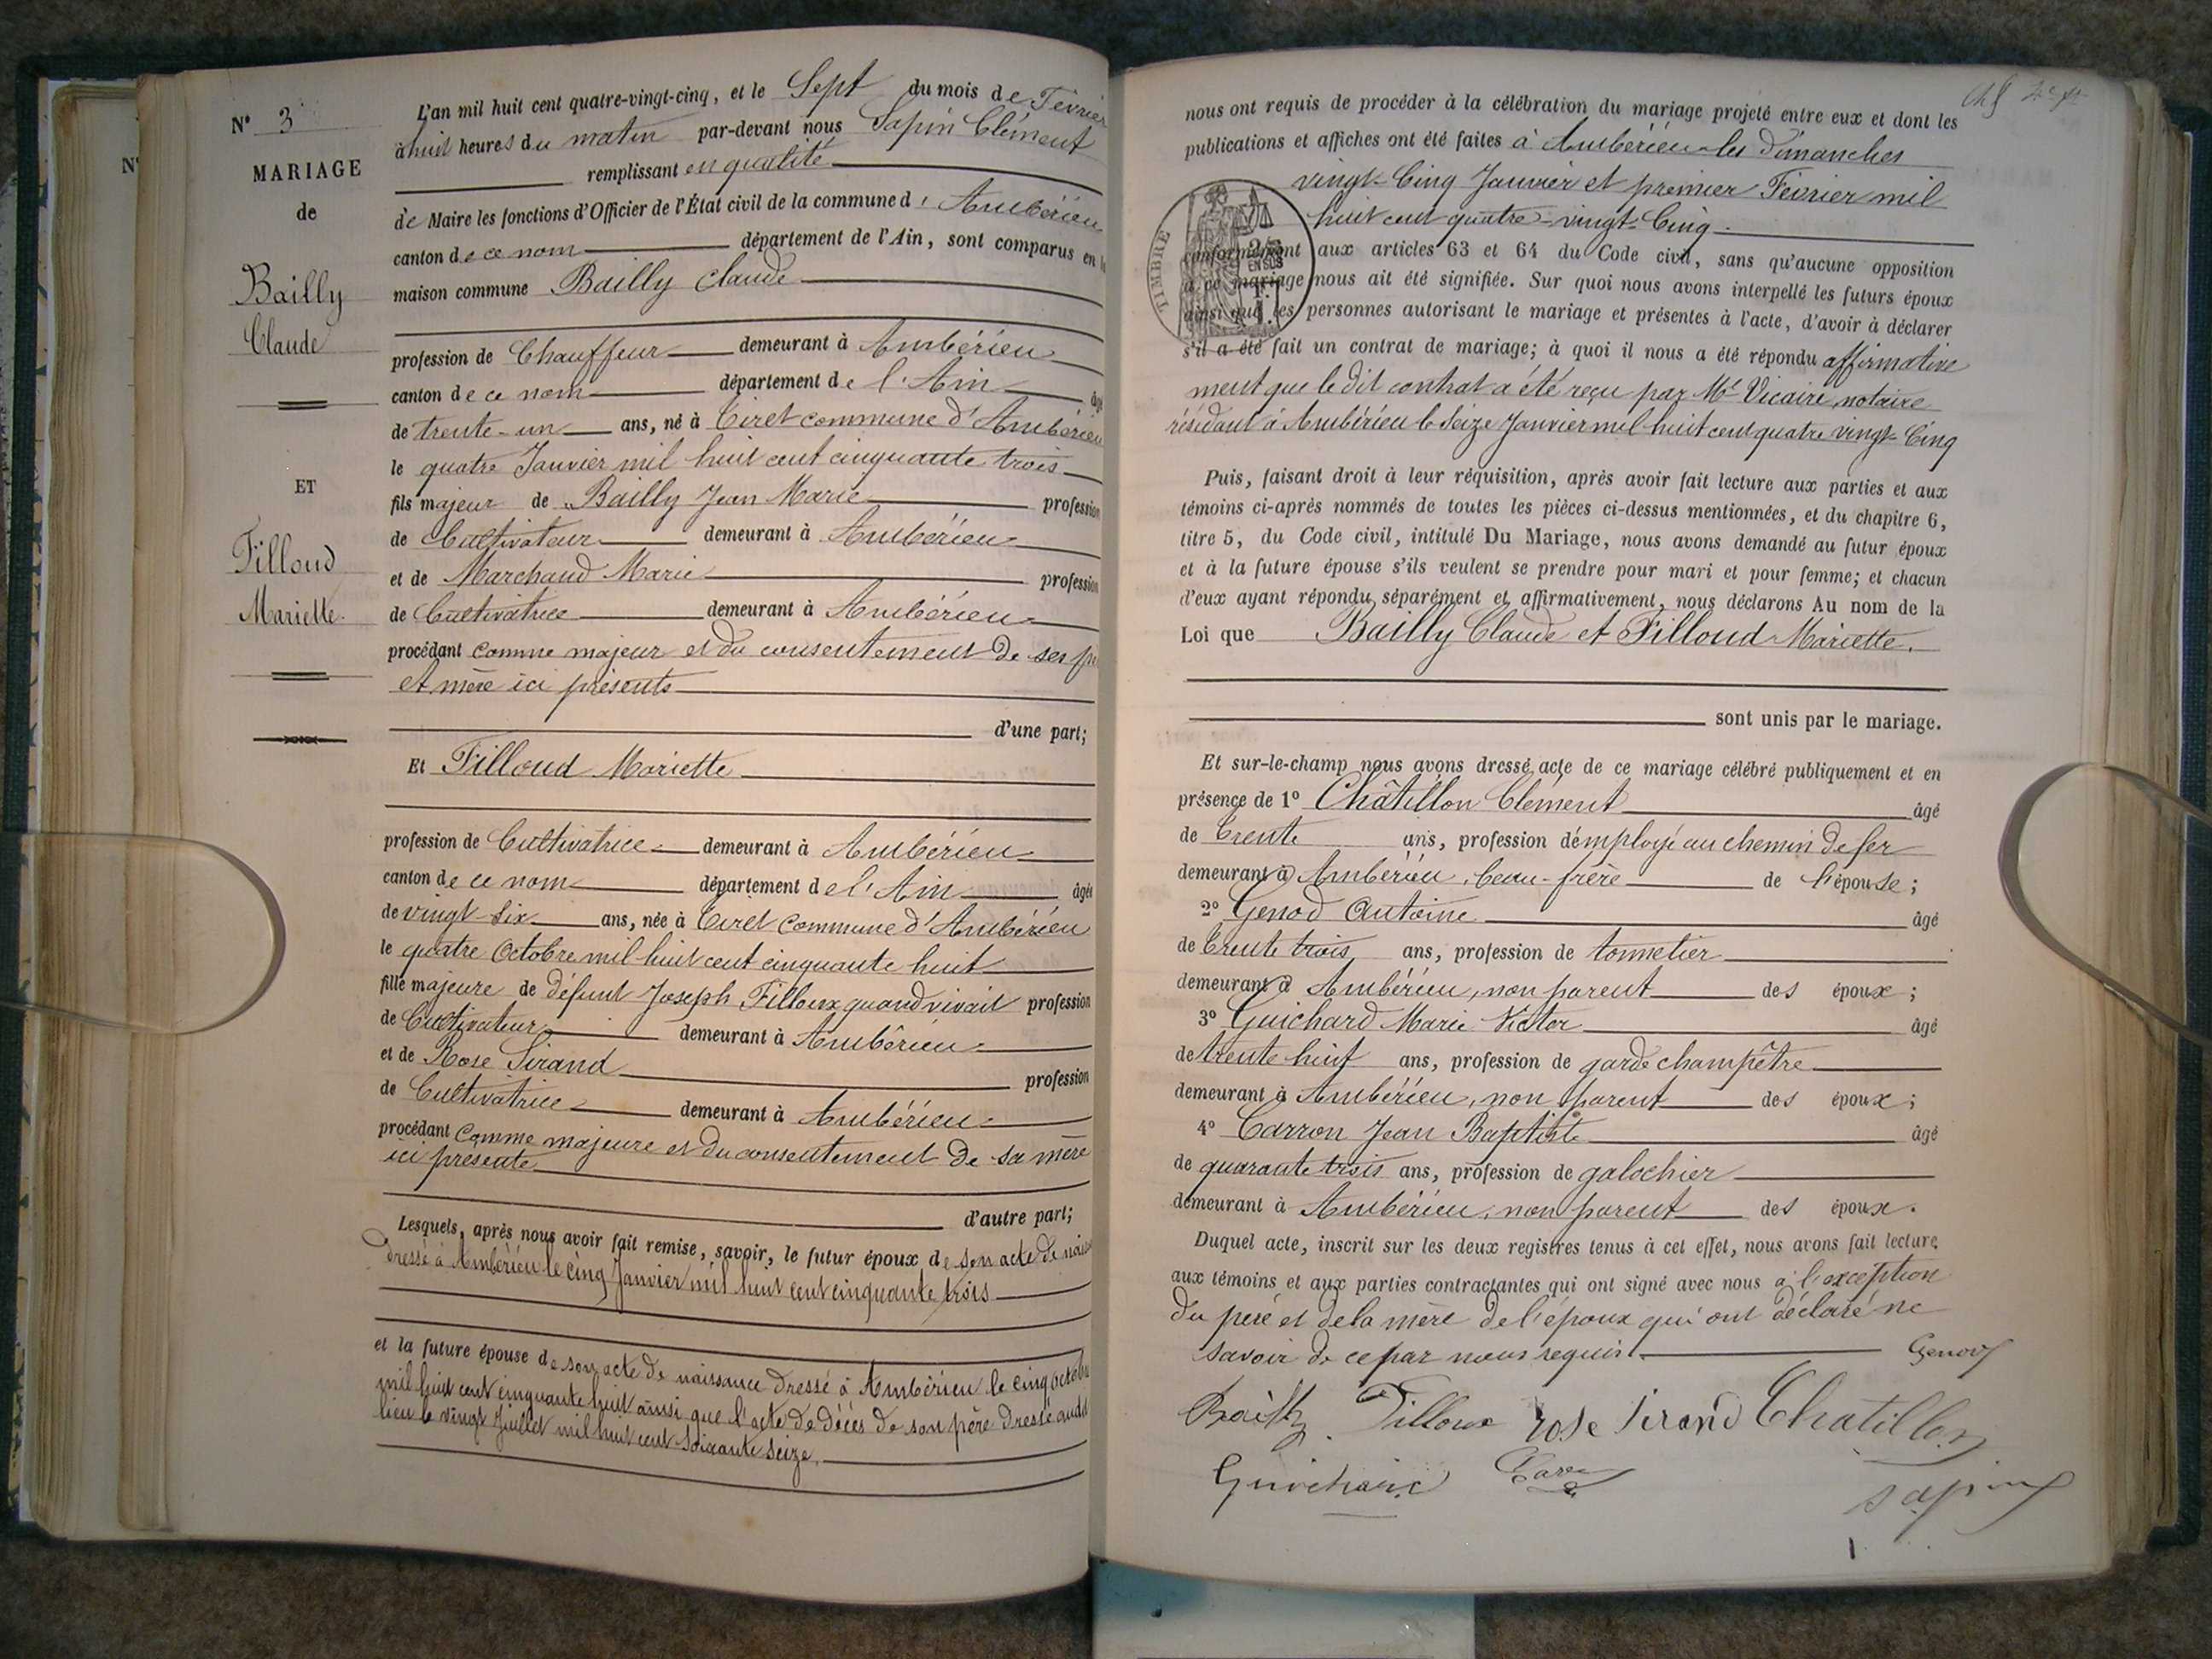 N° 3
MARIAGE
de
Bailly
Claude
ET
Filloud
Mariette
L'an mil huit cent quatre-vingt-cinq, et le Sept du mois de Février
à huit heures du matin par-devant nous Sapin Clément
remplissant en qualité
de Maire les fonctions d'Officier de l'État civil de la commune d'Ambérieu
canton de ce nom département de l'Ain, sont comparus en
maison commune Bailly Claude
profession de Chauffeur demeurant à Ambérieu
canton de ce nom département de l'Ain âgé
de trente-un ans, né à Tiret commune d'Ambérieu
le quatre Janvier mil huit cent cinquante trois
fils majeur de Bailly Jean Marie profession
de Cultivateur demeurant à Ambérieu
et de Marchand Marie profession
de Cultivatrice demeurant à Ambérieu
procédant comme majeur et du consentement de ses
et mère ici présents
d'une part;
Et Filloud Mariette
profession de Cultivatrice demeurant à Ambérieu
canton de ce nom département de l'Ain âgée
de vingt-six ans, née à Tiret commune d'Ambérieu
le quatre Octobre mil huit cent cinquante huit
fille majeure de défunt Joseph Filloux quand vivait profession
de Cultivateur demeurant à Ambérieu
et de Rose Sirand profession
de Cultivatrice demeurant à Ambérieu
procédant comme majeure et du consentement de sa mère
ici présente
d'autre part;
Lesquels, après nous avoir fait remise, savoir, le futur époux de son acte de
dressé à Ambérieu le cinq Janvier mil huit cent cinquante trois
et la future épouse de son acte de naissance dressé à Ambérieu le cinq octobre
mil huit cent cinquante huit ainsi que l'acte de décès de son père dressé audit
lieu le vingt Juillet mil huit cent soixante seize.
nous ont requis de procéder à la célébration du mariage projeté entre eux et dont les
publications et affiches ont été faites à Ambérieu les dimanches
vingt-Cinq Janvier et premier Février mil
huit cent quatre-vingt-Cinq
TIMBRE
conformément aux articles 63 et 64 du Code civil, sans qu'aucune opposition
à ce mariage nous ait été signifiée. Sur quoi nous avons interpellé les futurs époux
ainsi que les personnes autorisant le mariage et présentes à l'acte, d'avoir à déclarer
s'il a été fait un contrat de mariage; à quoi il nous a été répondu affirmative
ment que le dit contrat a été reçu par Me Vicaire notaire
résidant à Ambérieu le seize Janvier mil huit cent quatre vingt-Cinq
Puis, faisant droit à leur réquisition, après avoir fait lecture aux parties et aux
témoins ci-après nommés de toutes les pièces ci-dessus mentionnées, et du chapitre 6,
titre 5, du Code civil, intitulé Du Mariage, nous avons demandé au futur époux
et à la future épouse s'ils veulent se prendre pour mari et pour femme; et chacun
d'eux ayant répondu séparément et affirmativement, nous déclarons Au nom de la
Loi que Bailly Claude et Filloud Mariette.
sont unis par le mariage.
Et sur-le-champ nous avons dressé acte de ce mariage célébré publiquement et en
présence de 1° Châtillon Clément âgé
de trente ans, profession d'employé au chemin de fer
demeurant à Ambérieu, beau-frère de l'épouse;
2° Genod Antoine âgé
de trente trois ans, profession de tonnelier
demeurant à Ambérieu, non parent des époux;
3° Guichard Marie Victor âgé
de trente huit ans, profession de garde champêtre
demeurant à Ambérieu, non parent des époux;
4° Carron Jean Baptiste âgé
de quarante trois ans, profession de galochier
demeurant à Ambérieu, non parent des époux.
Duquel acte, inscrit sur les deux registres tenus à cet effet, nous avons fait lecture
aux témoins et aux parties contractantes qui ont signé avec nous à l'exception
du père et de la mère de l'époux qui ont déclaré ne
savoir de ce par nous requis.
Genod
Bailly Filloux rose Sirand Chatillon
Guichard
Sapin